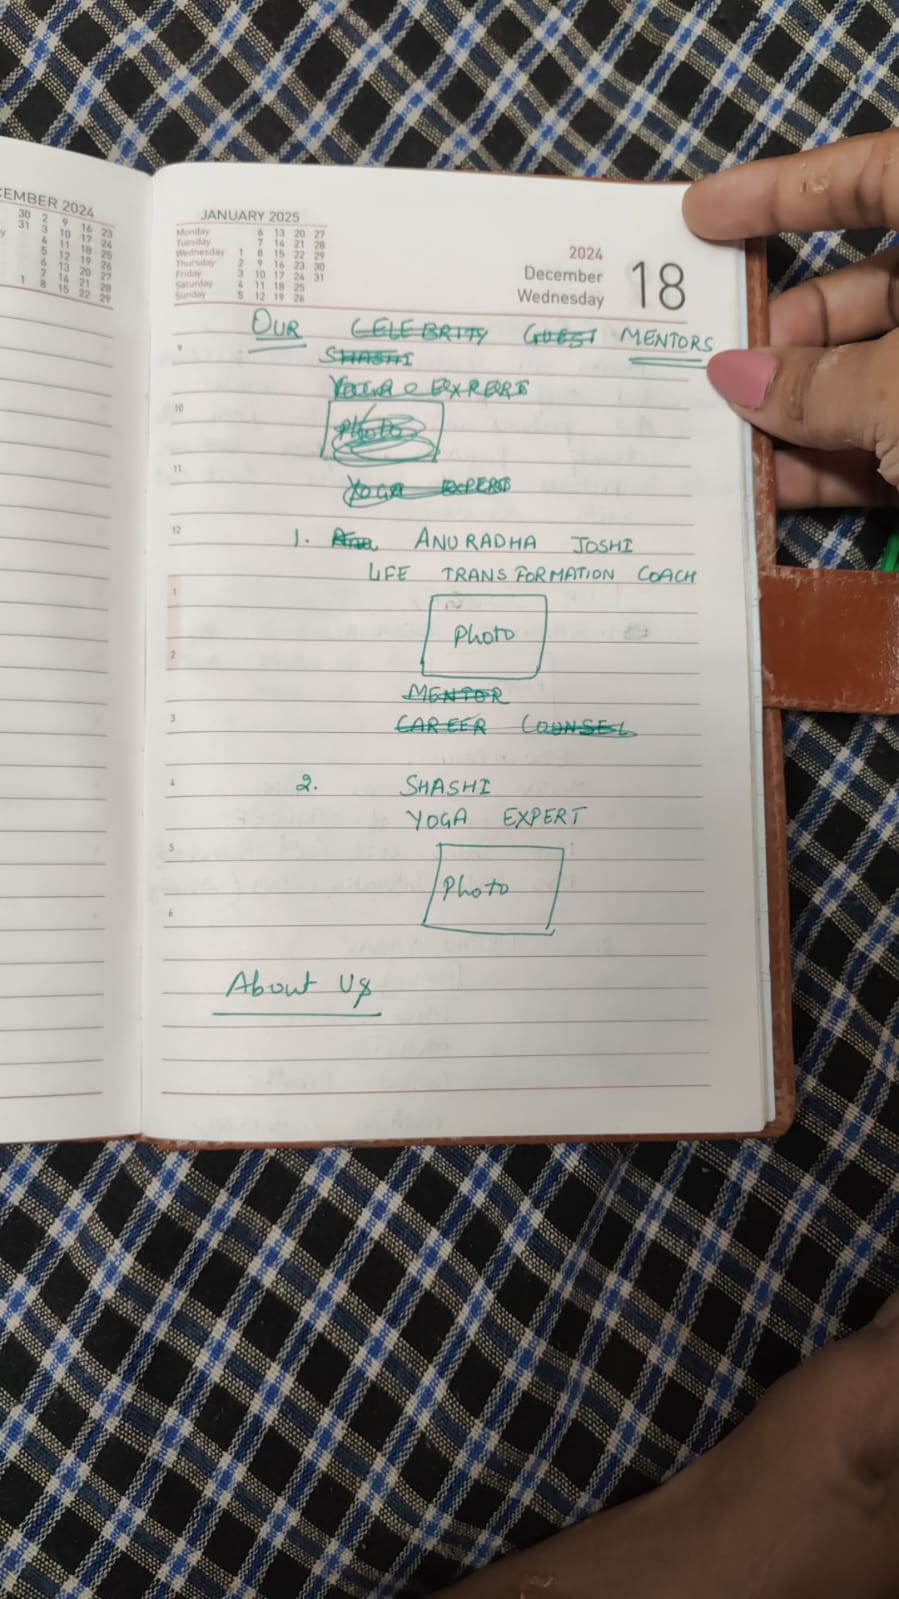 CEMBER 2024
30 2 9 16 23
31 3 10 17 24
4 11 18 25
5 12 19 26
6 13 20 27
7 14 21 28
1 8 15 22 29
JANUARY 2025
Monday 6 13 20 27
Tuesday 7 14 21 28
Wednesday 1 8 15 22 29
Thursday 2 9 16 23 30
Friday 3 10 17 24 31
Saturday 4 11 18 25
Sunday 5 12 19 26
2024
December
Wednesday
18
OUR CELEBRITY GUEST MENTORS
9
SHASHI
EXPERT
10
Photo
11
YOGA EXPERT
12
1. ANURADHA JOSHI
LIFE TRANSFORMATION COACH
1
Photo
2
MENTOR
3
CAREER COUNSEL
4
2. SHASHI
YOGA EXPERT
5
Photo
6
About Us